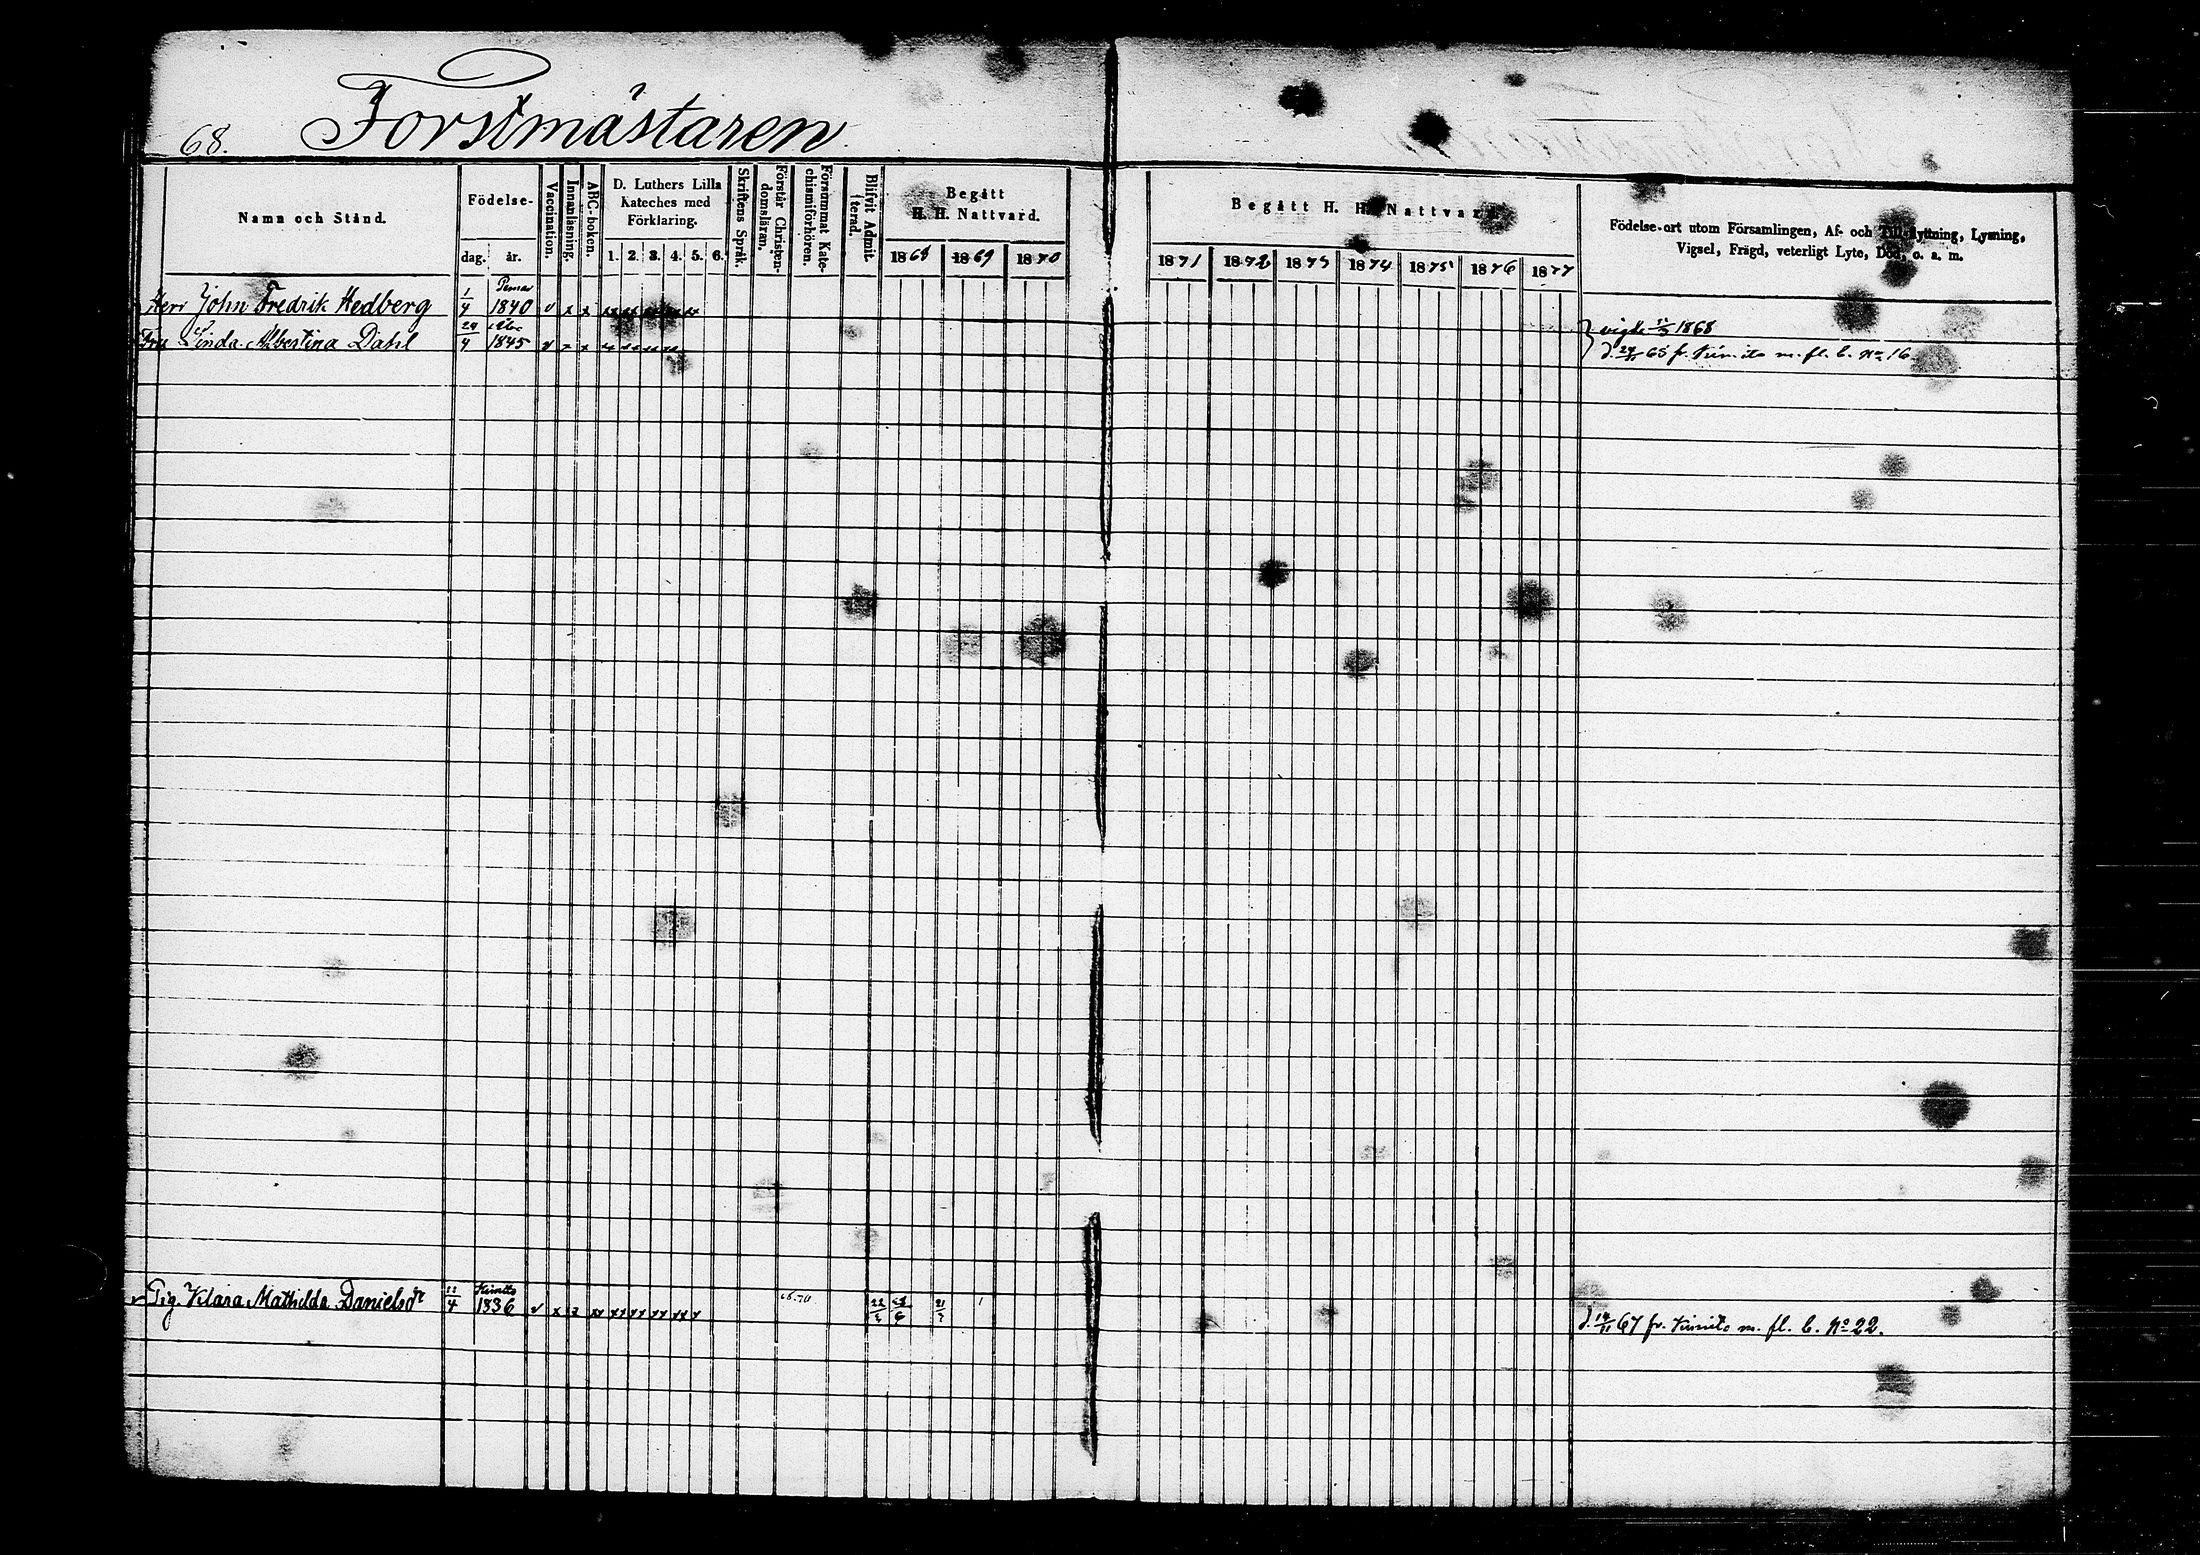 68. Forstmästaren
Namn och Stånd.
Födelse-
dag. år.
Vaccination.
Innanläsning.
ABC-boken.
D. Luthers Lilla
Kateches med
Förklaring.
1. 2. 3. 4. 5. 6.
Skriftens Språk.
Förstår Christen-
domsläran.
Försummat Kate-
chismiförhören.
Blifvit Admit-
terad.
Begått
H. H. Nattvard.
1868 1869 1870
Begått H. H. Nattvard.
1871 1872 1873 1874 1875 1876 1877
Födelse-ort utom Församlingen, Af- och Till-flyttning, Lysning,
Vigsel, Frägd, veterligt Lyte, Död, o. a. m.
Pemar
Herr John Fredrik Hedberg 1/4 1840 v x x
Åbo
Fru Linda Albertina Dahl 24/4 1845
vigde 1868
fr. Kimito m. fl. b. No 16.
Kimito
Pig. Klara Mathilda Danielsdr 11/4 1836
67 fr. Kimito m. fl. b. No 22.